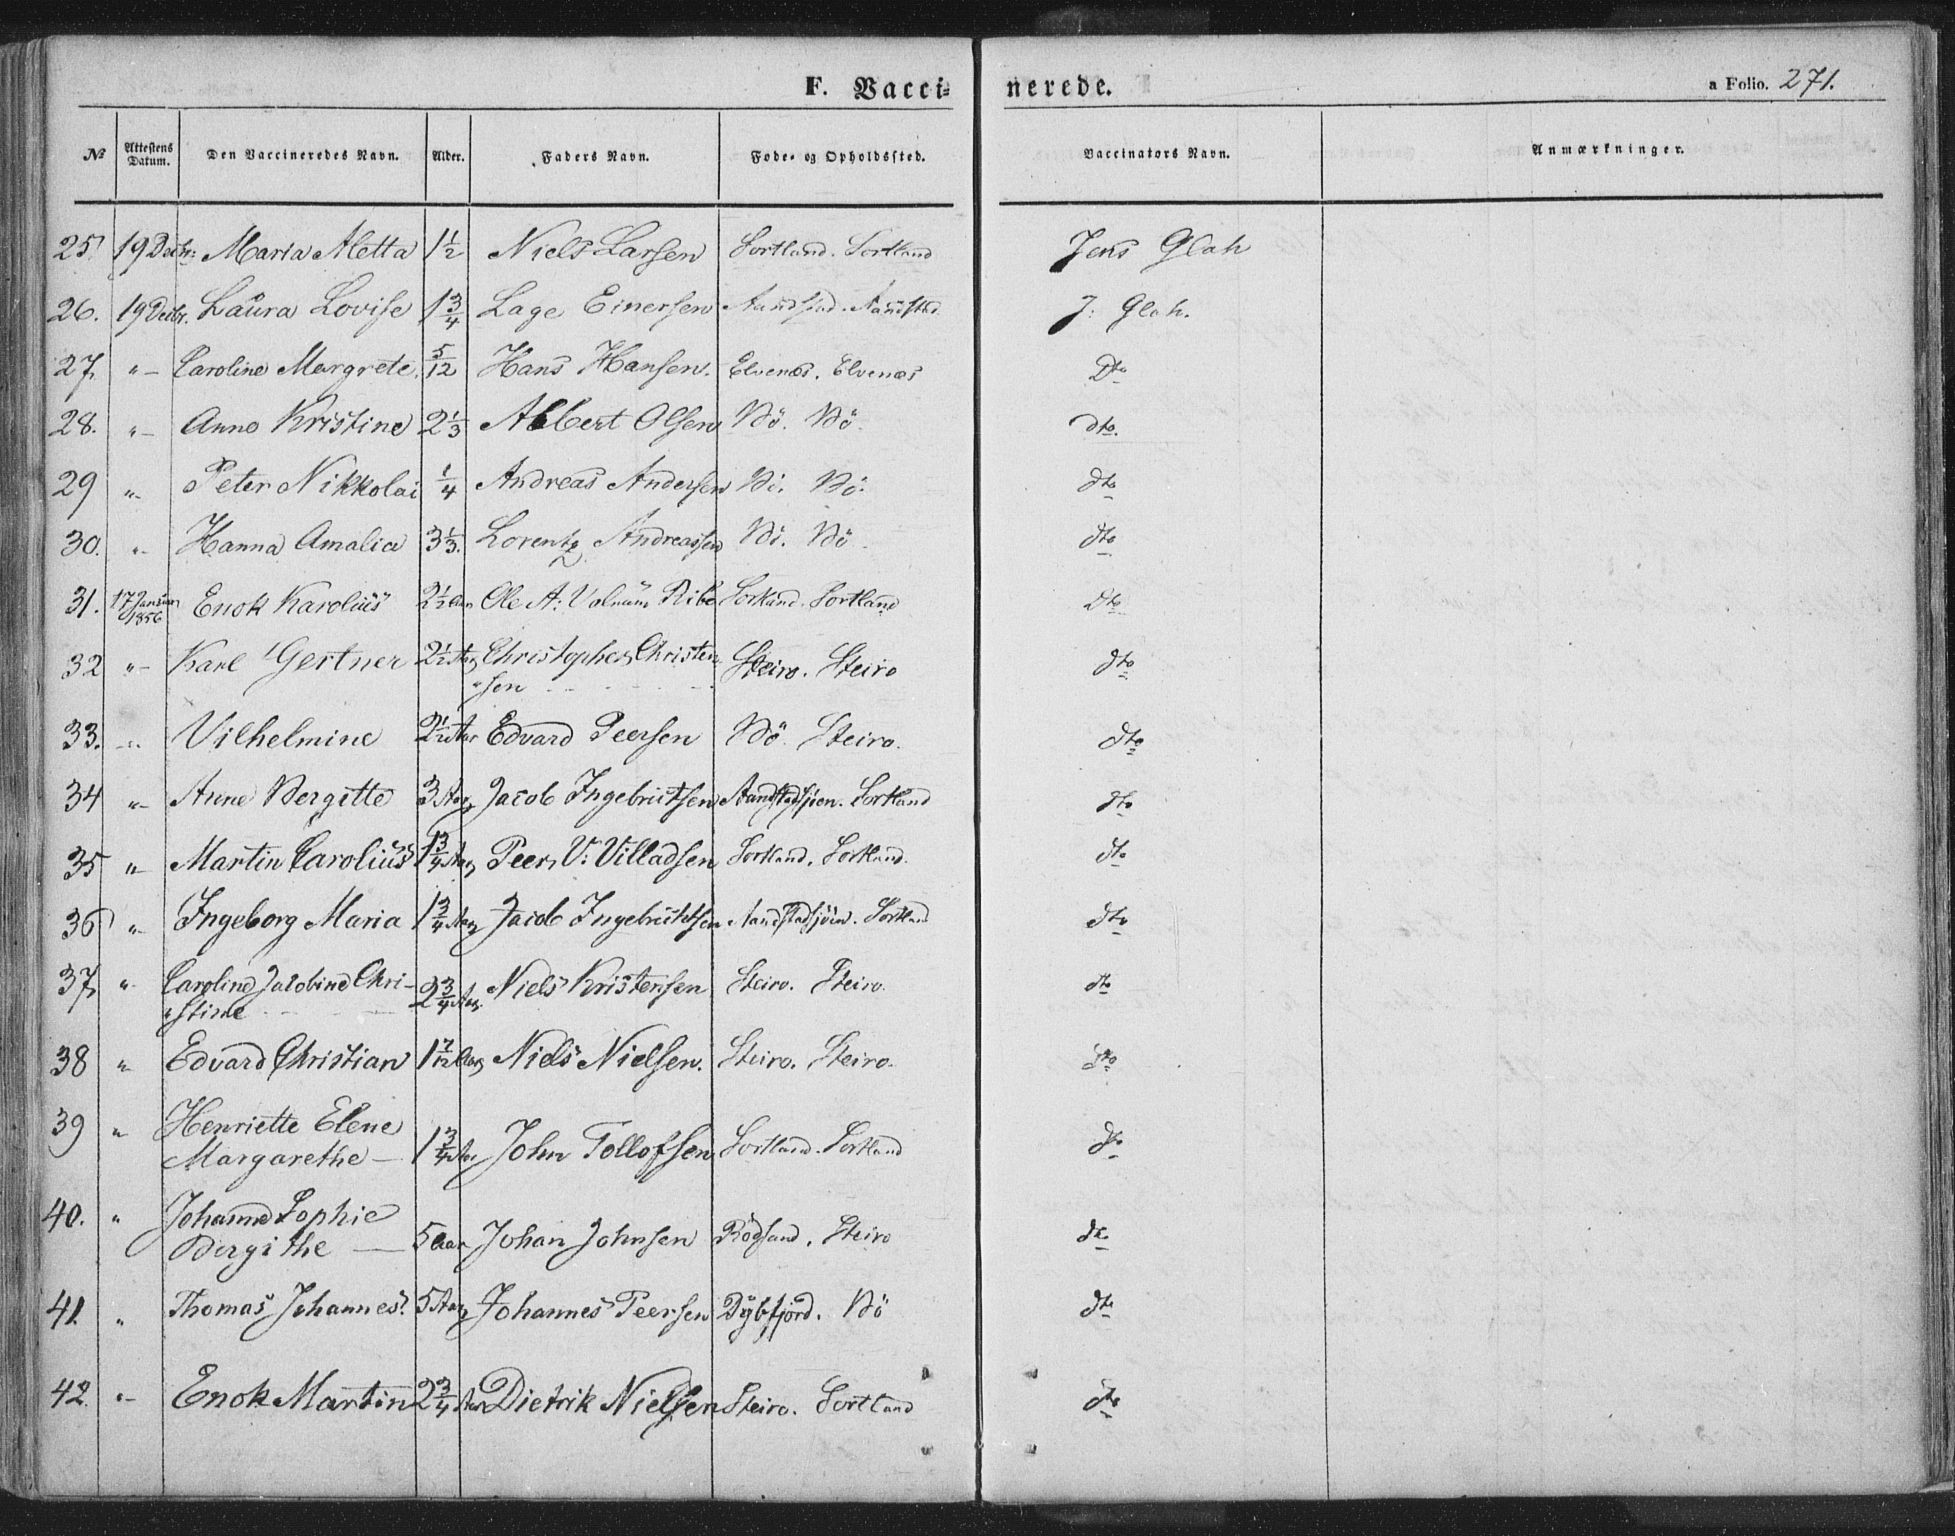 F. Vacci-nerede. a Folio. 271.
No Attestens Datum. Den Vaccineredes Navn. Alder. Faders Navn. Føde- og Opholdssted. Vaccinators Navn. Anmærkninger.
25 19 Decbr: Maria Aletta 1 1/2 Niels Larsen Sortland. Sortland Jens Glah
26. 19 Decbr. Laura Lovise 1 3/4 Lage Einersen Aandstad. Aandstad J: Glah.
27, "- Caroline Margrete. 5/12 Hans Hansen. Elvenæs. Elvenæs Dto
28. "- Anne Kristine 2 1/3 Albert Olsen Bö. Bö. dto.
29 "- Peter Nikkolai 1/4 Andreas Andersen Bö. Bö. dto
30. "- Hanna Amalia 3 1/3. Lorentz Andreassen Bö. Bö dto
31. 17 Januar 1856 Enok Karolius 2 1/2 Aar Ole A: Ribe Sortland. Sortland Dto
32 "- Karl Gertner 2 1/2 Aar Christopher Christen- Steiro. Steiro dto
"sen
33. "- Vilhelmine 2 1/2 Aar Edvard Peersen Bö. Steiro. dto
34 "- Anne Bergitte 3 Aar Jacob Ingebrictsen Aandstadsjöen. Sortland dto
35 "- Martin Carolius 1 3/4 Aar Peer V: Villadsen Sortland. Sortland. dto
36 "- Ingeborg Maria 1 3/4 Aar Jacob Ingebrichtsen Aandstadsjöen. Sortland dto
37, "- Caroline Jacobine Chri- 2 3/4 Aar. Niels Kristensen Steiro. Steiro. dto
"stine
38 "- Edvard Christian 1 7/12 Aar Niels Nielsen. Steiro. Steiro. dto
39 " Henriette Elene
Margarethe — 1 3/4 Aar John Tollofsen Sortland. Sortland do
40. " Johanne Sophie
Bergithe — 5 Aar Johan Johnsen Rödsand. Steiro do
41. " Thomas Johannes. 5 Aar Johannes Peersen Dybfjord. Bö dto
42. "- Enok Martin 2 3/4 Aar Dietrik Nielsen Steiro. Sortland dto